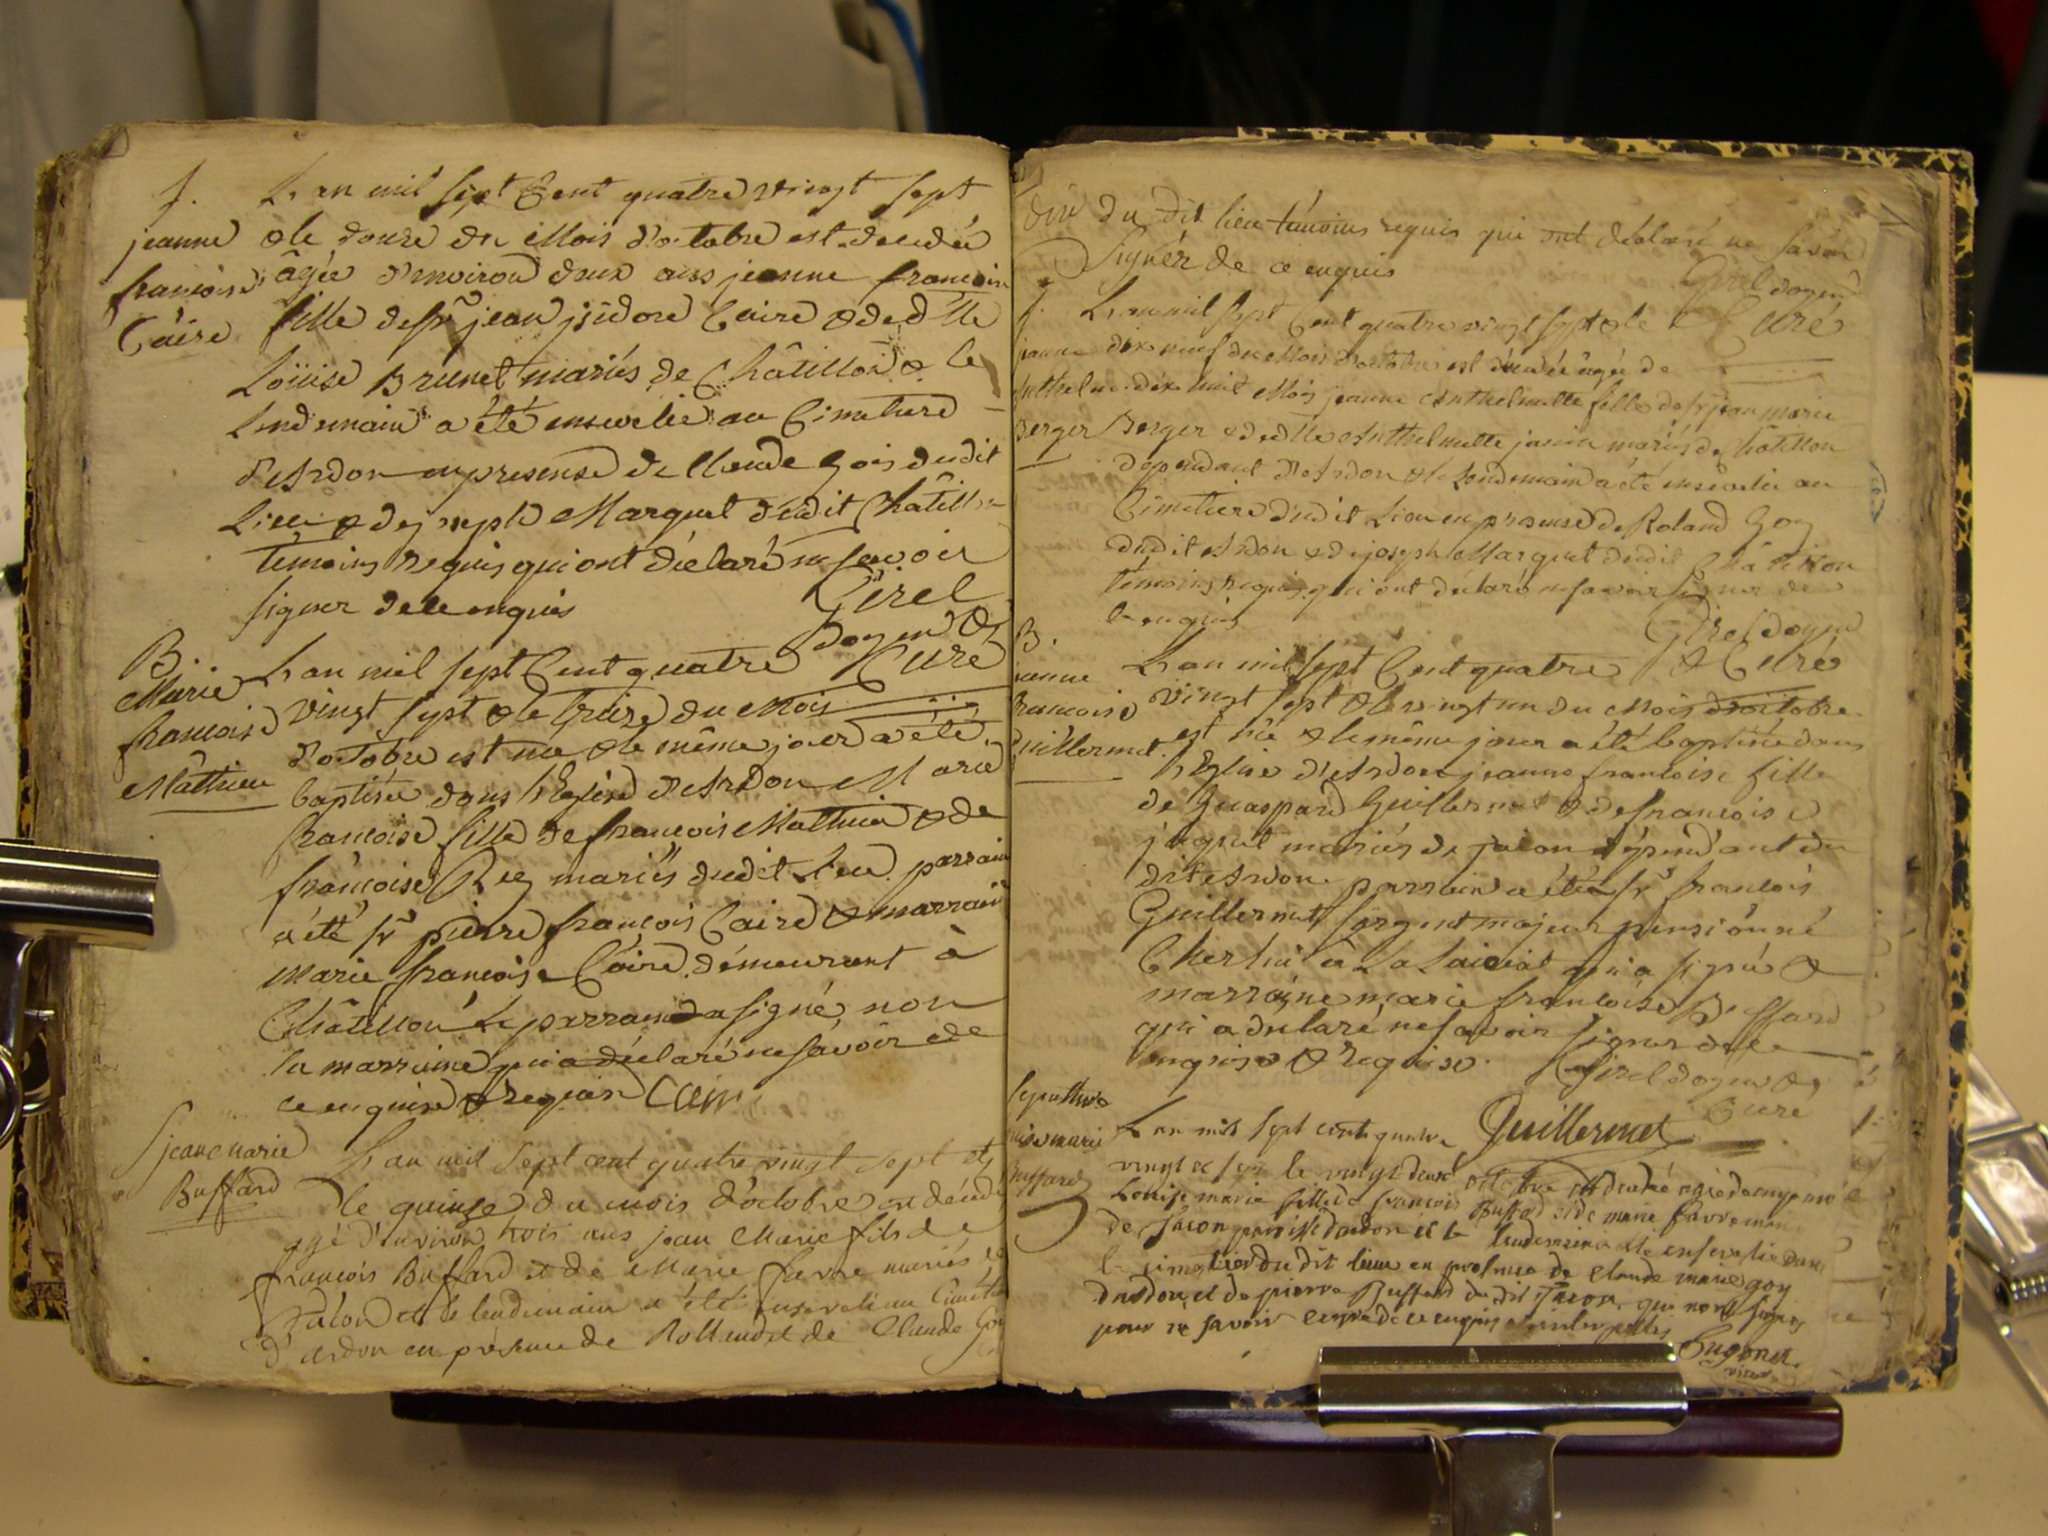 S.
jeanne
françoise
Caire
L'an mil sept Cent quatre vingt sept
& le douze du Mois d'octobre est decedée
âgée d'environ deux ans jeanne françoise
fille de sr jean jsidore Caire & de dlle
Loüise Brunet mariés de Châtillon & le
Lendemain a été ensevelie au Cimetiere
d'Ardon en presense de Claude Gois dudit
Lieu & de joseph Marquet dudit Châtillon
témoins requis qui ont déclaré ne savoir
signer de ce enquis Girel
Doyen &
Curé
B
Marie
françoise
Mathieu
L'an mil sept Cent quatre
vingt sept & le treize du Mois
d'octobre est née & le même jour a été
baptisée dans l'Eglise d'Ardon Marie
françoise fille de françois Mathieu & de
françoise Rey mariés dudit Lieu parrain
a été sr pierre françois Caire & marraine
marie françoise Caire demeurant à
Châtillon Le parrain a signé non
la marraine qui a déclaré ne savoir de
ce enquise & requise Caire
S jean marie
Buffard
L'an mil sept cent quatre vingt sept et
le quinze du mois d'octobre est décédé
agé d'environ trois ans jean Marie fils de
françois Buffard et de Marie favre mariés de
Jacon et le lendemain a été enseveli au Cimetiere
d'ardon en présence de Rolland et de Claude Goy
du dit lieu témoins requis qui ont déclaré ne savoir
Signér de ce enquis
Girel doyen
& Curé
S.
jeanne
Anthelmette
Berger
L'an mil sept Cent quatre vingt sept & le
dix neuf du Mois d'octobre est decedée âgée de
dix huit Mois jeanne Anthelmette fille de sr jean marie
Berger & de dlle Anthelmette janin mariés de Châtillon
dependant d'Ardon & le Lendemain a été ensevelie au
Cimetiere dudit Lieu en presense de Roland Goy
dudit Ardon & de joseph Marquet dudit Châtillon
témoins requis qui ont declaré ne savoir signer de
ce enquis
Girel doyen
& Curé
B.
jeanne
francoise
Guillermet
L'an mil sept Cent quatre
vingt sept & le vingt un du Mois d'octobre
est née & le même jour a été baptisée dans
l'Eglise d'Ardon jeanne françoise fille
de Gaspard Guillermet & de françoise
juquet mariés de jacon dépendant du
dit Ardon parrain a été sr françois
Guillermet sergent major pensionné
Chez lui à La qui a signé &
marraine marie françoise Buffard
qui a declaré ne savoir signer de ce
enquise & requise. Girel doyen &
Curé
Guillermet
sepulture
louise marie
Buffard
L'an mil sept cent quatre
vingt et sept le vingt deux octobre est decedé
Louise marie fille de françois Buffard et de marie favre
de Jacon paroisse dardon et le lendemain a été ensevelie dans
le cimetier du dit lieu en presence de Claude marie goy
dardon et de pierre Buffard du dit Jacon qui nont signés
pour ne savoir de ce enquis et interpellés
Cugonet
vicaire